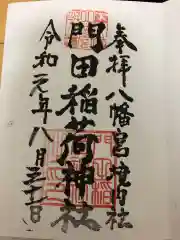 奉拝 八幡宮境内社
門田稲荷神社
令和元年八月三十一日